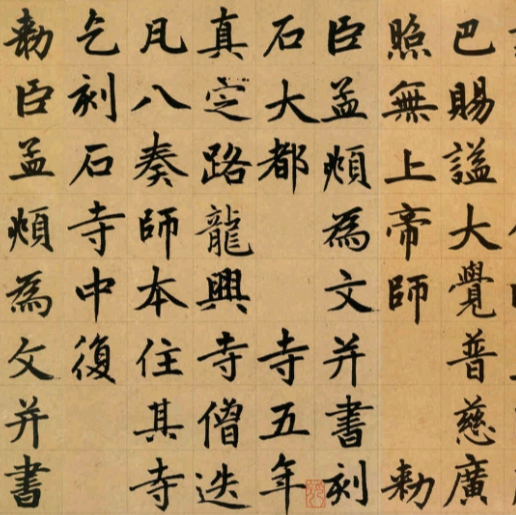 巴賜謚大覺普慈廣
照無上帝師 敕
臣孟頫為文并書刻
石大都 寺五年
真定路龍興寺僧迭
凡八奏師本住其寺
乞刻石寺中復
敕臣孟頫為文并書